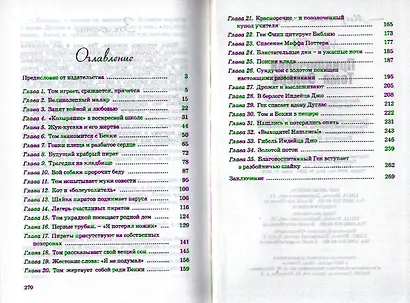 Оглавление
Предисловие от издательства 3
Глава 1. Том играет, сражается, прячется 5
Глава 2. Великолепный маляр 16
Глава 3. Занят войной и любовью 22
Глава 4. «Козыряние» в воскресной школе 31
Глава 5. Жук-кусака и его жертва 44
Глава 6. Том знакомится с Бекки 50
Глава 7. Гонки клеща и разбитое сердце 65
Глава 8. Будущий храбрый пират 72
Глава 9. Трагедия на кладбище 80
Глава 10. Вой собаки пророчит беду
Глава 11. Тома испытывают муки совести
Глава 12. Кот и «болеутолитель» 100
Глава 13. Шайка пиратов поднимает паруса 106
Глава 14. Лагерь счастливых пиратов 116
Глава 15. Том украдкой посещает родной дом 124
Глава 16. Первые трубки. – «Я потерял ножик» 130
Глава 17. Пираты присутствуют на собственных
похоронах 141
Глава 18. Том рассказывает свой вещий сон 145
Глава 19. Жестокие слова: «Я не подумал» 156
Глава 20. Том жертвует собой ради Бекки 159
270
Глава 21. Красноречие – и позолоченный
купол учителя 165
Глава 22. Гек Финн цитирует Библию 173
Глава 23. Спасение Меффа Поттера 177
Глава 24. Блистательные дни – и ужасные ночи 185
Глава 25. Поиски клада
Глава 26. Сундучок с золотом похищен
настоящими разбойниками
Глава 27. Дрожат и выслеживают 205
Глава 28. В берлоге Индейца Джо
Глава 29. Гек спасает вдову Дуглас
Глава 30. Том и Бекки в пещере
Глава 31. Нашлись и потерялись опять
Глава 32. «Выходите! Нашлись!»
Глава 33. Гибель Индейца Джо
Глава 34. Золотой поток
Глава 35. Благовоспитанный Гек вступает
в разбойничью шайку 262
Заключение 269